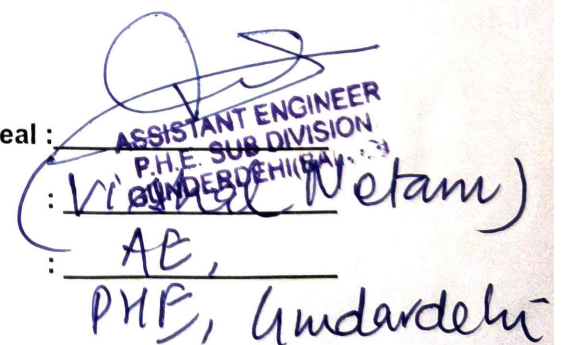 eal :
ASSISTANT ENGINEER
P.H.E. SUB DIVISION
GUNDERDEHI
: (Vishal Netam)
: AE,
PHE, Gundardehi